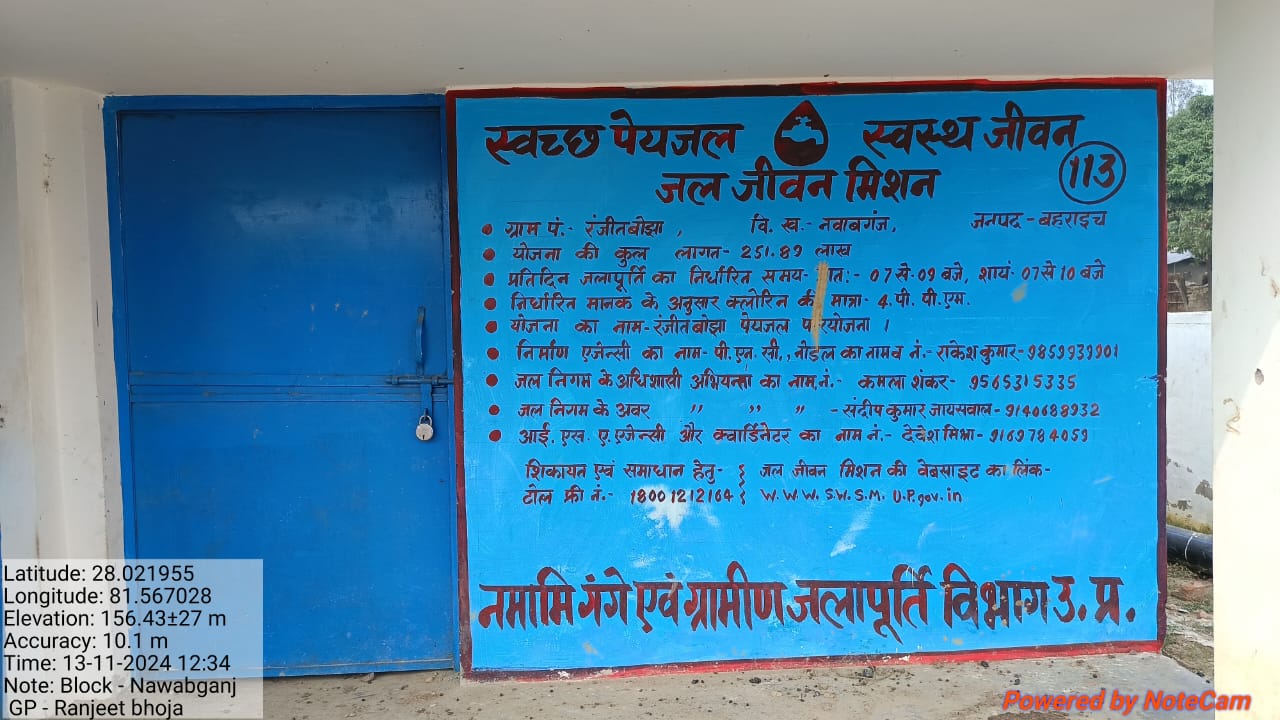 स्वच्छ पेयजल स्वस्थ जीवन
जल जीवन मिशन
113
ग्राम पं.- रंजीतबोझा, वि. ख.- नवाबगंज, जनपद - बहराइच
योजना की कुल लागत- 251.89 लाख
प्रतिदिन जलापूर्ति का निर्धारित समय- 07 से 09 बजे, शायं- 07 से 10 बजे
निर्धारित मानक के अनुसार क्लोरिन की मात्रा- 4. पी. पी. एम.
योजना का नाम- रंजीतबोझा पेयजल परियोजना ।
निर्माण एजेन्सी का नाम- पी. एन. सी., नोडल का नाम व नं.- राकेश कुमार- 9859939901
जल निगम के अधिशासी अभियन्ता का नाम नं.- कमला शंकर- 9565315335
जल निगम के अवर " " " - संदीप कुमार जायसवाल- 9140688932
आई. एस. ए. एजेन्सी और क्वार्डिनेटर का नाम नं.- देवेश मिश्रा- 9169784059
शिकायत एवं समाधान हेतु- } जल जीवन मिशन की वेबसाइट का लिंक-
टोल फ्री नं.- 18001212164 } W.W.W. S.W.S.M. U.P.gov.in
नमामि गंगे एवं ग्रामीण जलापूर्ति विभाग उ. प्र.
Latitude: 28.021955
Longitude: 81.567028
Elevation: 156.43±27 m
Accuracy: 10.1 m
Time: 13-11-2024 12:34
Note: Block - Nawabganj
GP - Ranjeet bhoja
Powered by NoteCam